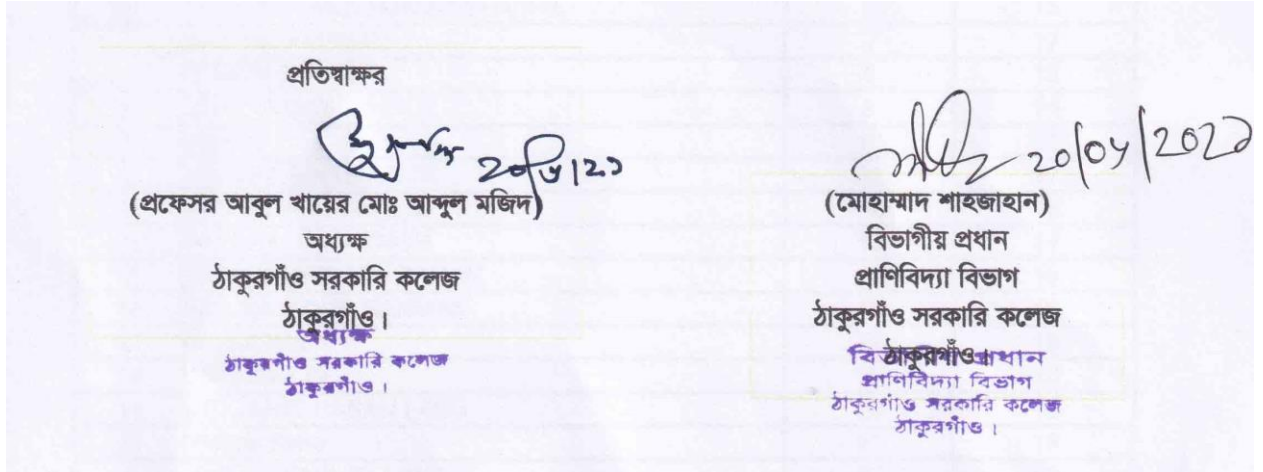 প্রতিস্বাক্ষর
(প্রফেসর আবুল খায়ের মোঃ আব্দুল মজিদ)
অধ্যক্ষ
ঠাকুরগাঁও সরকারি কলেজ
ঠাকুরগাঁও।
অধ্যক্ষ
ঠাকুরগাঁও সরকারি কলেজ
ঠাকুরগাঁও ।
(মোহাম্মাদ শাহজাহান)
বিভাগীয় প্রধান
প্রাণিবিদ্যা বিভাগ
ঠাকুরগাঁও সরকারি কলেজ
ঠাকুরগাঁও।
প্রাণিবিদ্যা বিভাগ
ঠাকুরগাঁও সরকারি কলেজ
ঠাকুরগাঁও ।